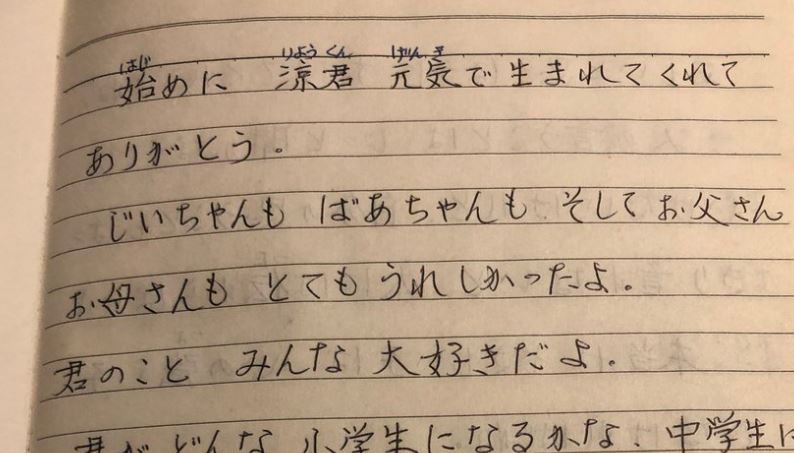 始めに 涼君 元気で生まれてくれて
ありがとう。
じいちゃんも ばあちゃんも そしてお父さん
お母さんも とてもうれしかったよ。
君のこと みんな 大好きだよ。
君がどんな小学生になるかな、中学生に